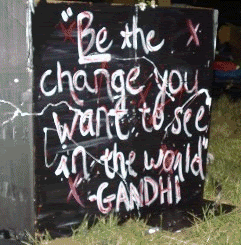 "Be the
change you
want to see
in the world"
-GANDHI